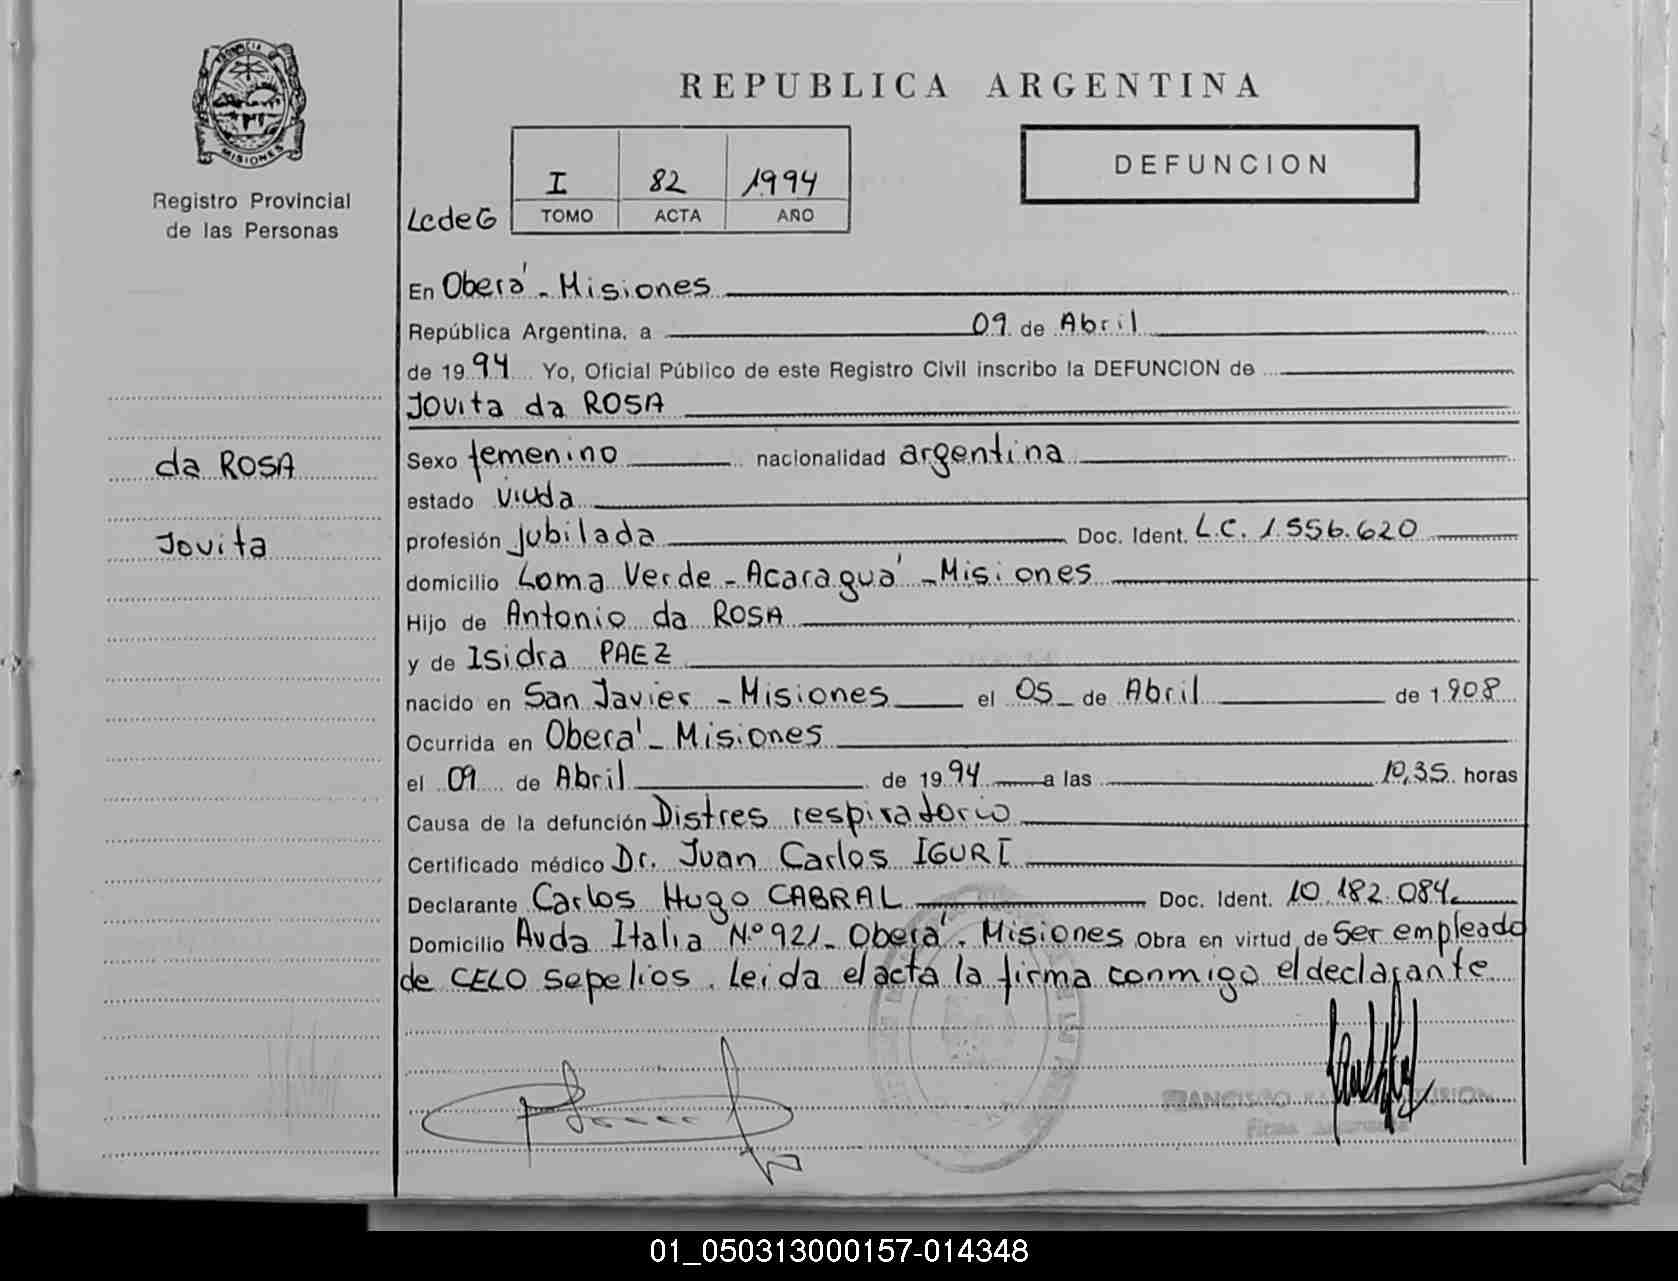 PROVINCIA DE
MISIONES
Registro Provincial
de las Personas
REPUBLICA ARGENTINA
I 82 1994
TOMO ACTA AÑO
LcdeG
DEFUNCION
En Oberá - Misiones
República Argentina, a 09 de Abril
de 1994 Yo, Oficial Público de este Registro Civil inscribo la DEFUNCION de
Jovita da ROSA
da ROSA
Jovita
Sexo femenino nacionalidad argentina
estado viuda
profesión jubilada Doc. Ident. L.C. 1.556.620
domicilio Loma Verde - Acaraguá - Misiones
Hijo de Antonio da ROSA
y de Isidra PAEZ
nacido en San Javier - Misiones el 05 de Abril de 1.908
Ocurrida en Oberá - Misiones
el 09 de Abril de 1994 a las 10,35 horas
Causa de la defunción Distres respiratorio
Certificado médico Dr. Juan Carlos IGURI
Declarante Carlos Hugo CABRAL Doc. Ident. 10.182.084
Domicilio Avda Italia Nº 921 - Oberá. Misiones Obra en virtud de Ser empleado
de CELO Sepelios. Leida el acta la firma conmigo el declarante
FRANCISCO
01_050313000157-014348